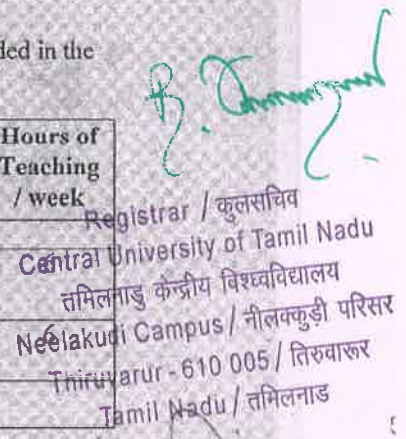 ded in the
Hours of
Teaching
/ week
Registrar / कुलसचिव
Central University of Tamil Nadu
तमिलनाडु केन्द्रीय विश्वविद्यालय
Neelakudi Campus / नीलक्कुड़ी परिसर
Thiruvarur - 610 005 / तिरुवारूर
Tamil Nadu / तमिलनाड